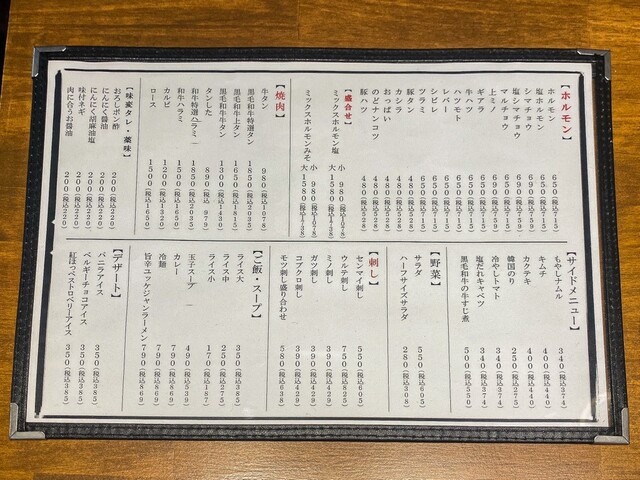 【ホルモン】
ホルモン 650(税込715)
塩ホルモン 650(税込715)
シマチョウ
塩シマチョウ
マルチョウ
上ミノ
ギアラ 650(税込715)
牛ハツ 650(税込715)
ハツモト 650(税込715)
レバー 650(税込715)
シビレ 650(税込715)
ツラミ 650(税込715)
豚タン 480(税込528)
カシラ 480(税込528)
おっぱい 480(税込528)
のどナンコツ 480(税込528)
豚ハツ 480(税込528)
【盛合せ】
ミックスホルモン塩 小 980(税込1078)
大 1580(税込1738)
ミックスホルモンみそ 小 980(税込1078)
大 1580(税込1738)
【焼肉】
牛タン 980(税込1078)
黒毛和牛特選タン 1850(税込2035)
黒毛和牛上タン 1650(税込1815)
黒毛和牛牛タン 1300(税込1430)
タンした 890(税込979)
和牛特選ハラミ 1850(税込2035)
和牛ハラミ 1500(税込1650)
カルビ 1200(税込1320)
ロース 1500(税込1650)
【味変タレ・薬味】
おろしポン酢 200(税込220)
にんにく醤油 200(税込220)
にんにく胡麻油塩 200(税込220)
味付ネギ 200(税込220)
肉に合うお醤油 200(税込220)
【サイドメニュー】
もやしナムル 340(税込374)
キムチ 400(税込440)
カクテキ 400(税込440)
韓国のり 250(税込275)
冷やしトマト 340(税込374)
塩だれキャベツ 340(税込374)
黒毛和牛の牛すじ煮 500(税込550)
【野菜】
サラダ 550(税込605)
ハーフサイズサラダ 280(税込308)
【刺し】
センマイ刺し 550(税込605)
ウルテ刺し 750(税込825)
ミノ刺し 390(税込429)
ガツ刺し 390(税込429)
コブクロ刺し 390(税込429)
モツ刺し盛り合わせ 580(税込638)
【ご飯・スープ】
ライス大 350(税込385)
ライス中 250(税込275)
ライス小 170(税込187)
玉子スープ 490(税込539)
カレー 790(税込869)
冷麺 790(税込869)
旨辛ユッケジャンラーメン 790(税込869)
【デザート】
バニラアイス 350(税込385)
ベルギーチョコアイス 350(税込385)
紅ほっペストロベリーアイス 350(税込385)